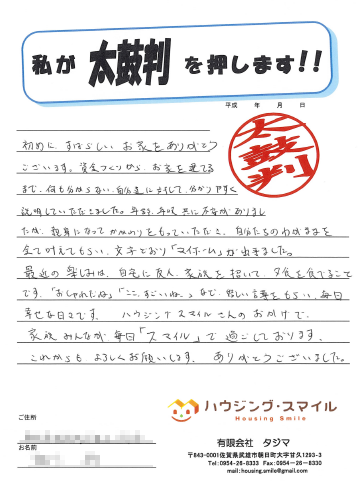 私が 太鼓判 を押します!!
平成　年　月　日
太鼓判
初めに、すばらしい お家を ありがとう
ございます。資金づくりから、お家を建てる
まで、何も分からない自分達に対して、分かりやすく
説明していただきました。年齢、年収 共に不安がありまし
たが、親身になって かかわりをもっていただき、自分たちのわがままを
全て叶えてもらい、文字どおり「マイホーム」が出来ました。
最近の楽しみは、自宅に友人、家族を招いて、夕食を食べること
です。「おしゃれだね」「ここ、すごいね。」など、嬉しい言葉をもらい、毎日
幸せな日々です。 ハウジングスマイルさんのおかげで、
家族みんなが毎日「スマイル」で過ごしております。
これからも よろしくお願いします。 ありがとうございました。
ハウジング・スマイル
Housing Smile
ご住所
お名前
有限会社 タジマ
〒843-0001佐賀県武雄市朝日町大字甘久1293-3
Tel:0954-26-8333 Fax:0954-26-8330
mail:housing.smile@gmail.com